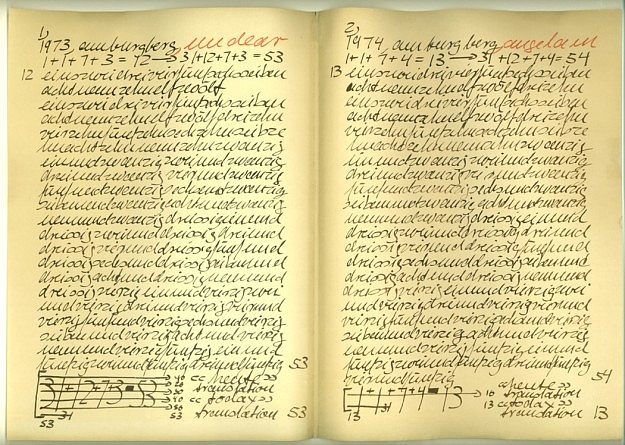 1)
1973, am burgberg,
1+1+7+3 = 12 → 31+12+7+3 = 53
12 einszweidreivierfünfsechssieben
achtneunzehnelfzwölf
einszweidreivierfünfsechssieben
achtneunzehnelfzwölfdreizehn
vierzehnfünfzehnsechzehnsiebze
hnachtzehnneunzehnzwanzig
einundzwanzigzweiundzwanzig
dreiundzwanzigvierundzwanzig
fünfundzwanzigsechsundzwanzig
siebenundzwanzigachtundzwanzig
neunundzwanzigdreissigeinund
dreissigzweiunddreissigdreiund
dreissigvierunddreissigfünfund
dreissigsechsunddreissigsiebenund
dreissigachtunddreissigneunund
dreissigvierzigeinundvierzigzwei
undvierzigdreiundvierzigvierund
vierzigfünfundvierzigsechsundvierzig
siebenundvierzigachtundvierzig
neunundvierzigfünfzigeinund
fünfzigzweiundfünfzigdreiundfünfzig 53
« heute »
translation
« today »
translation 53
31
53
2)
1974, am burgberg,
1+1+7+4 = 13 → 31+12+7+4 = 54
13 einszweidreivierfünfsechssieben
achtneunzehnelfzwölfdreizehn
einszweidreivierfünfsechssieben
achtneunzehnelfzwölfdreizehn
vierzehnfünfzehnsechzehnsiebze
hnachtzehnneunzehnzwanzig
einundzwanzigzweiundzwanzig
dreiundzwanzigvierundzwanzig
fünfundzwanzigsechsundzwanzig
siebenundzwanzigachtundzwanzig
neunundzwanzigdreissigeinund
dreissigzweiunddreissigdreiund
dreissigvierunddreissigfünfund
dreissigsechsunddreissigsiebenund
dreissigachtunddreissigneunund
dreissigvierzigeinundvierzigzwei
undvierzigdreiundvierzigvierund
vierzigfünfundvierzigsechsundvierzig
siebenundvierzigachtundvierzig
neunundvierzigfünfzigeinund
fünfzigzweiundfünfzigdreiundfünfzig
vierundfünfzig 54
1+1+7+4 = 13 → 10 « heute »
translation
13 « today »
translation 13
13 31